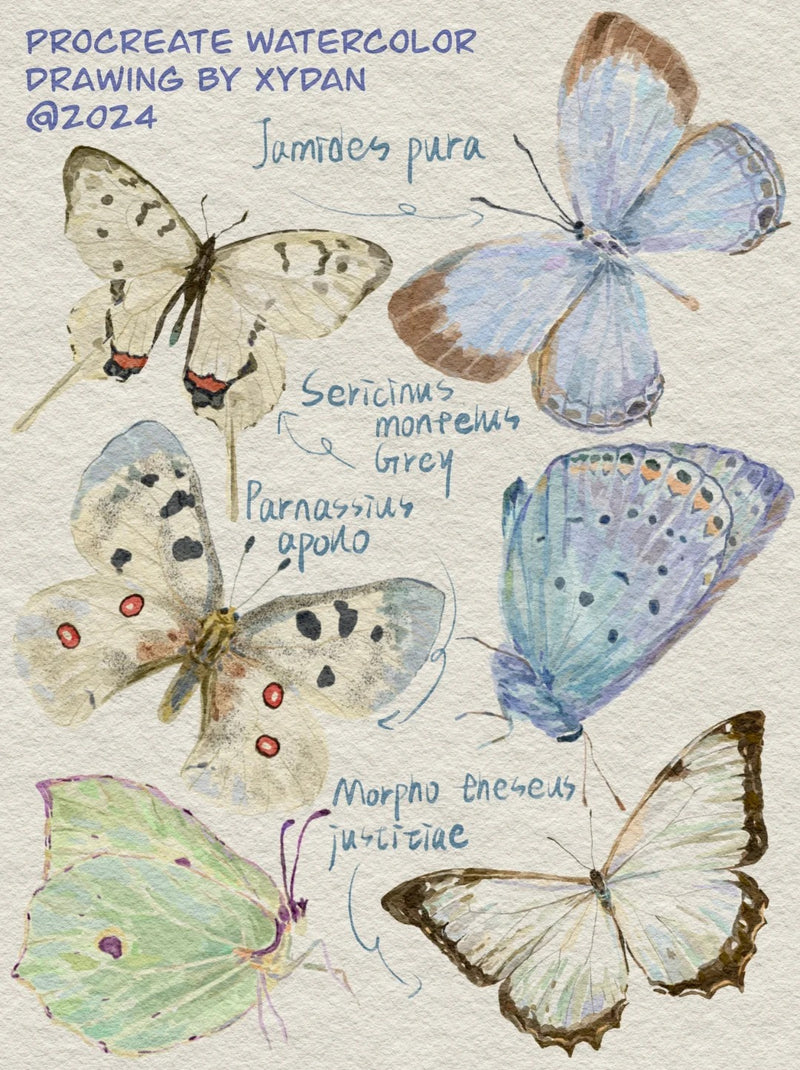 PROCREATE WATERCOLOR
DRAWING BY XYDAN
@2024
Jamides pura
Sericinus
montelus
Grey
Parnassius
apollo
Morpho theseus
justitiae